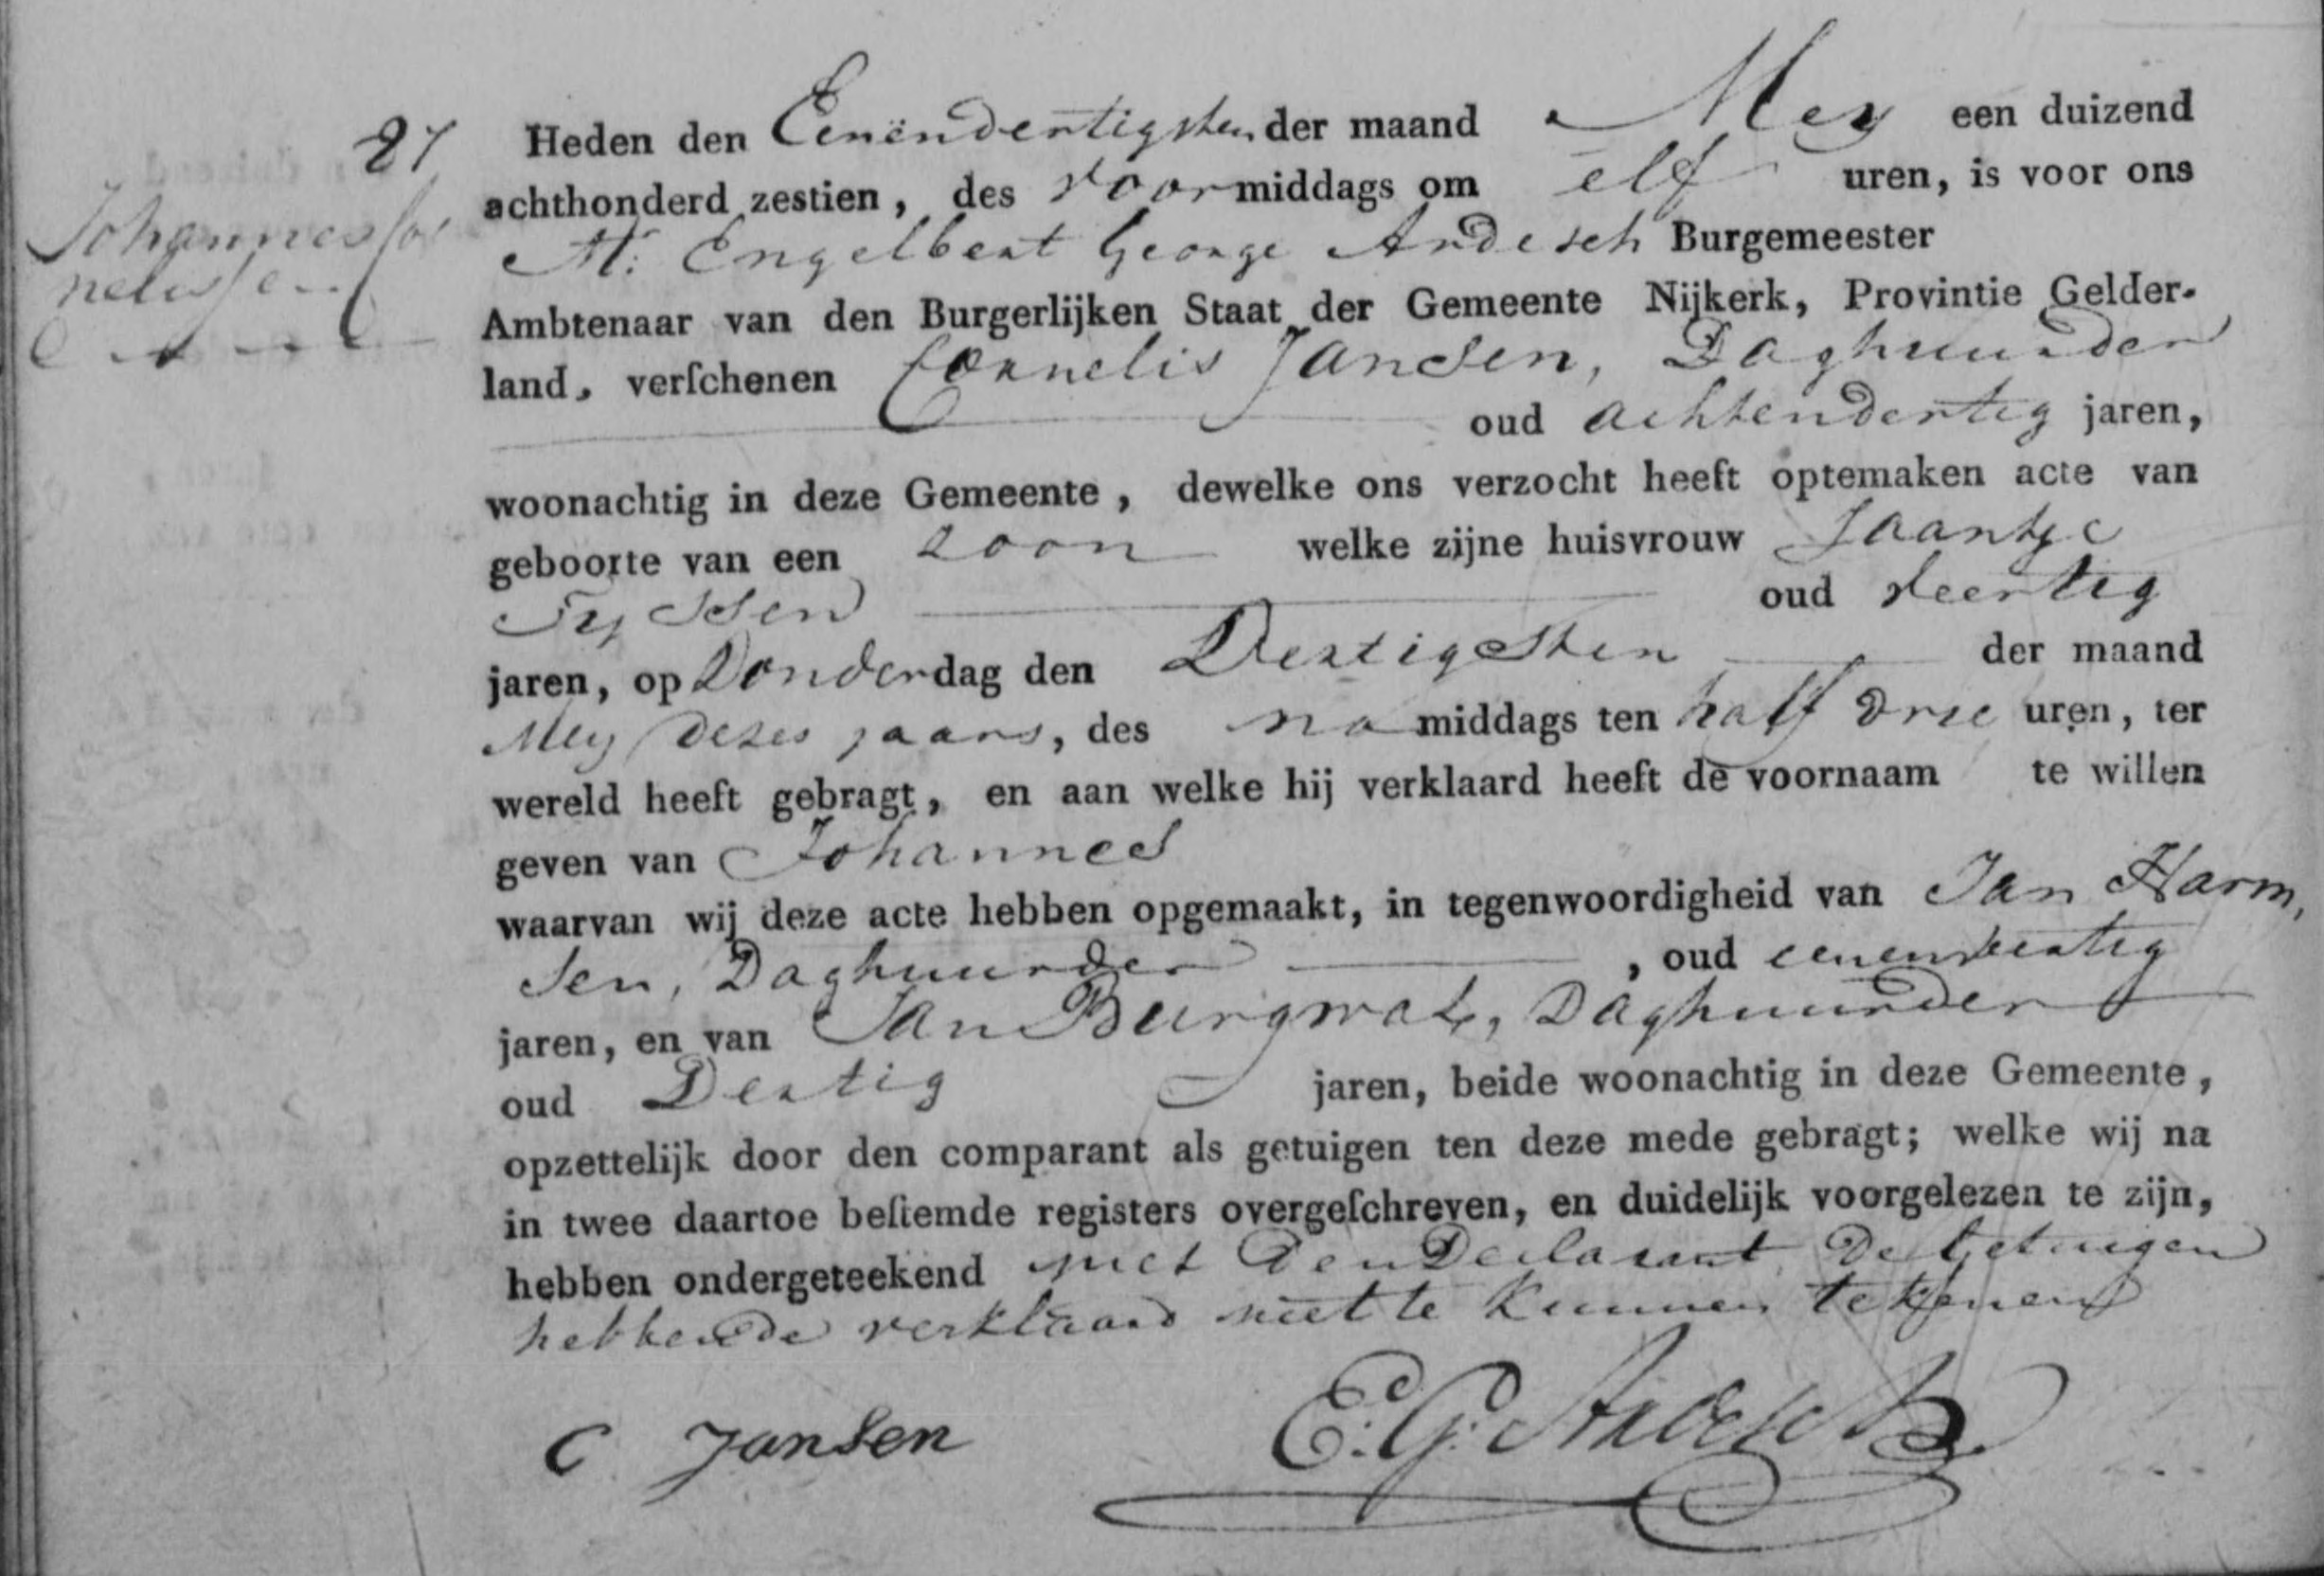 87
Johannes Cor
nelissen
Heden den Eenëndertigsten der maand Mey een duizend
achthonderd zestien, des voormiddags om elf uren, is voor ons
Mr. Engelbert George Ardesch Burgemeester
Ambtenaar van den Burgerlijken Staat der Gemeente Nijkerk, Provintie Gelder-
land, verſchenen Cornelis Jansen, Daghuurder
oud achtendertig jaren,
woonachtig in deze Gemeente, dewelke ons verzocht heeft optemaken acte van
geboorte van een zoon welke zijne huisvrouw Jaantje
Tyssen oud veertig
jaren, op Donderdag den Dertigsten der maand
Mey dezes jaars, des namiddags ten half drie uren, ter
wereld heeft gebragt, en aan welke hij verklaard heeft de voornaam te willen
geven van Johannes
waarvan wij deze acte hebben opgemaakt, in tegenwoordigheid van Jan Harm,
sen, Daghuurder, oud eenenveertig
jaren, en van Jan Burgwat, Daghuurder
oud Dertig jaren, beide woonachtig in deze Gemeente,
opzettelijk door den comparant als getuigen ten deze mede gebragt; welke wij na
in twee daartoe beſtemde registers overgeſchreven, en duidelijk voorgelezen te zijn,
hebben ondergeteekend met den Declarant de Getuigen
hebbende verklaard niet te kunnen tekenen
C Jansen E: G: Ardesch